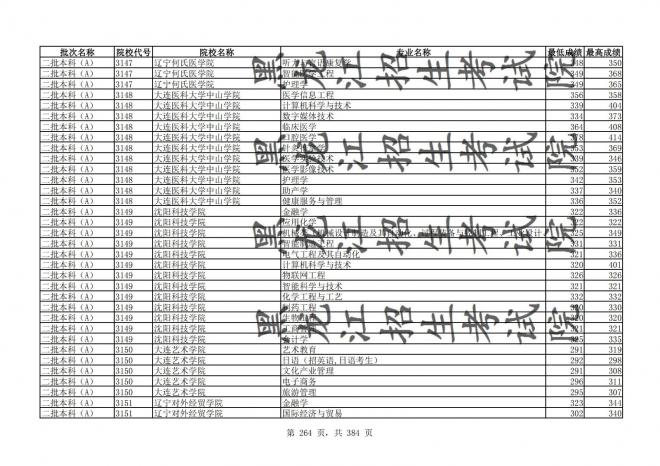 批次名称 院校代号 院校名称 专业名称 最低成绩 最高成绩
二批本科（A） 3147 辽宁何氏医学院 听力与言语康复学 348 350
二批本科（A） 3147 辽宁何氏医学院 智能医学工程 349 368
二批本科（A） 3147 辽宁何氏医学院 护理学 349 365
二批本科（A） 3148 大连医科大学中山学院 医学信息工程 356 358
二批本科（A） 3148 大连医科大学中山学院 计算机科学与技术 339 404
二批本科（A） 3148 大连医科大学中山学院 数字媒体技术 334 373
二批本科（A） 3148 大连医科大学中山学院 临床医学 364 408
二批本科（A） 3148 大连医科大学中山学院 口腔医学 378 414
二批本科（A） 3148 大连医科大学中山学院 针灸推拿学 353 369
二批本科（A） 3148 大连医科大学中山学院 医学检验技术 339 346
二批本科（A） 3148 大连医科大学中山学院 医学影像技术 352 359
二批本科（A） 3148 大连医科大学中山学院 护理学 342 353
二批本科（A） 3148 大连医科大学中山学院 助产学 337 340
二批本科（A） 3148 大连医科大学中山学院 健康服务与管理 336 352
二批本科（A） 3149 沈阳科技学院 金融学 322 336
二批本科（A） 3149 沈阳科技学院 应用化学 322 322
二批本科（A） 3149 沈阳科技学院 325 349
二批本科（A） 3149 沈阳科技学院 智能制造工程 331 331
二批本科（A） 3149 沈阳科技学院 电气工程及其自动化 321 336
二批本科（A） 3149 沈阳科技学院 计算机科学与技术 320 401
二批本科（A） 3149 沈阳科技学院 物联网工程 326 326
二批本科（A） 3149 沈阳科技学院 智能科学与技术 321 321
二批本科（A） 3149 沈阳科技学院 化学工程与工艺 332 332
二批本科（A） 3149 沈阳科技学院 制药工程 330
二批本科（A） 3149 沈阳科技学院 320 320
二批本科（A） 3149 沈阳科技学院 321 321
二批本科（A） 3149 沈阳科技学院 会计学 325 335
二批本科（A） 3150 大连艺术学院 艺术教育 291 319
二批本科（A） 3150 大连艺术学院 日语（招英语,日语考生） 292 298
二批本科（A） 3150 大连艺术学院 文化产业管理 291 308
二批本科（A） 3150 大连艺术学院 电子商务 296 311
二批本科（A） 3150 大连艺术学院 旅游管理 295 307
二批本科（A） 3151 辽宁对外经贸学院 金融学 323 344
二批本科（A） 3151 辽宁对外经贸学院 国际经济与贸易 302 340
黑龙江招生考试院
黑龙江招生考试院
黑龙江招生考试院
黑龙江招生考试院
第 264 页，共 384 页